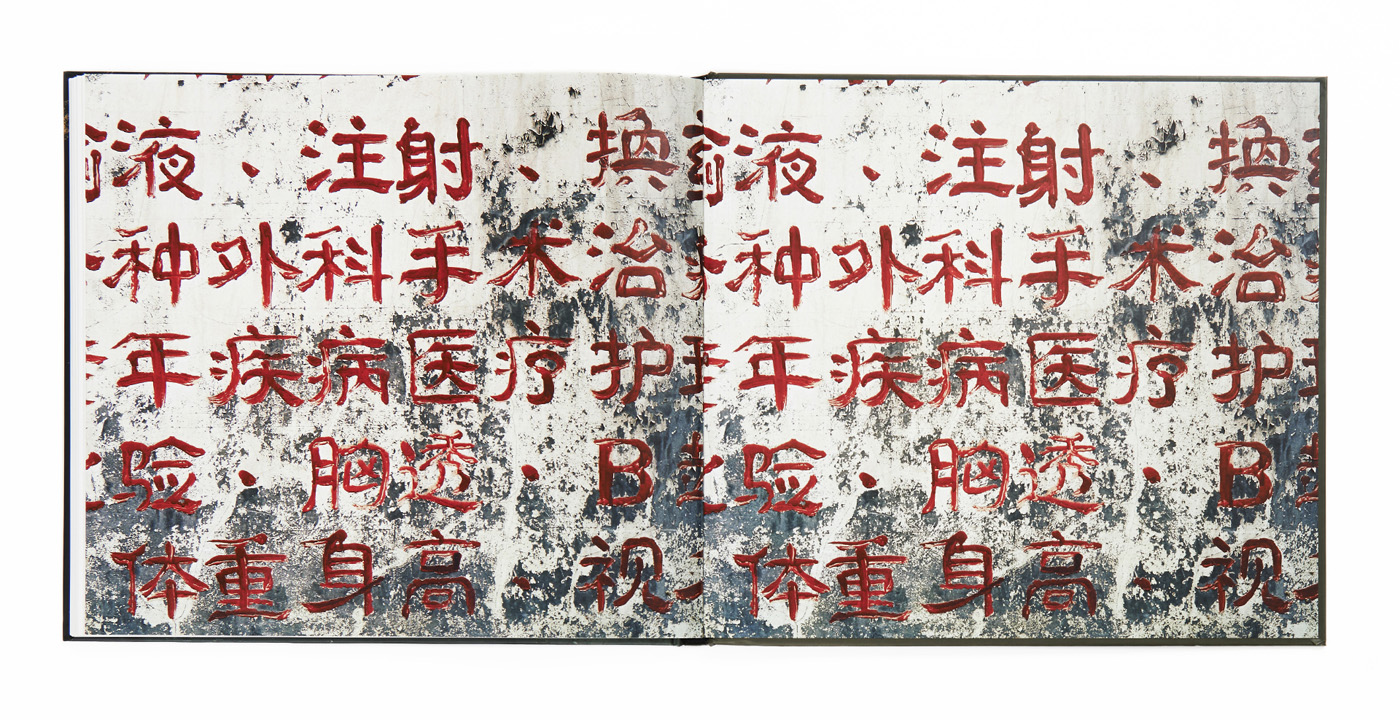 液、注射、换
种外科手术治
年疾病医疗护
验、胸透、B
体重身高、视
液、注射、换
种外科手术治
年疾病医疗护
验、胸透、B
体重身高、视